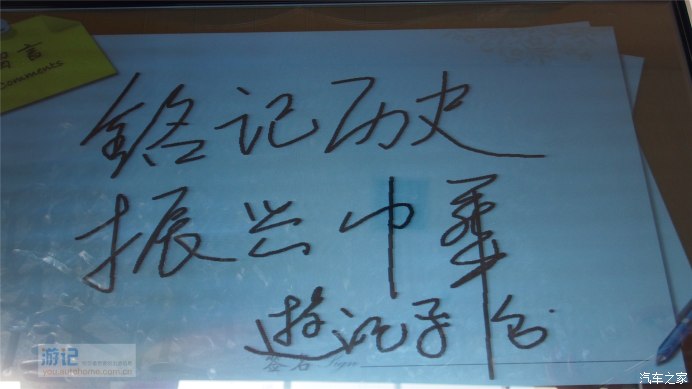 留言
comments
铭记历史
振兴中華
签名 Sign
游记
you.autohome.com.cn
汽车之家